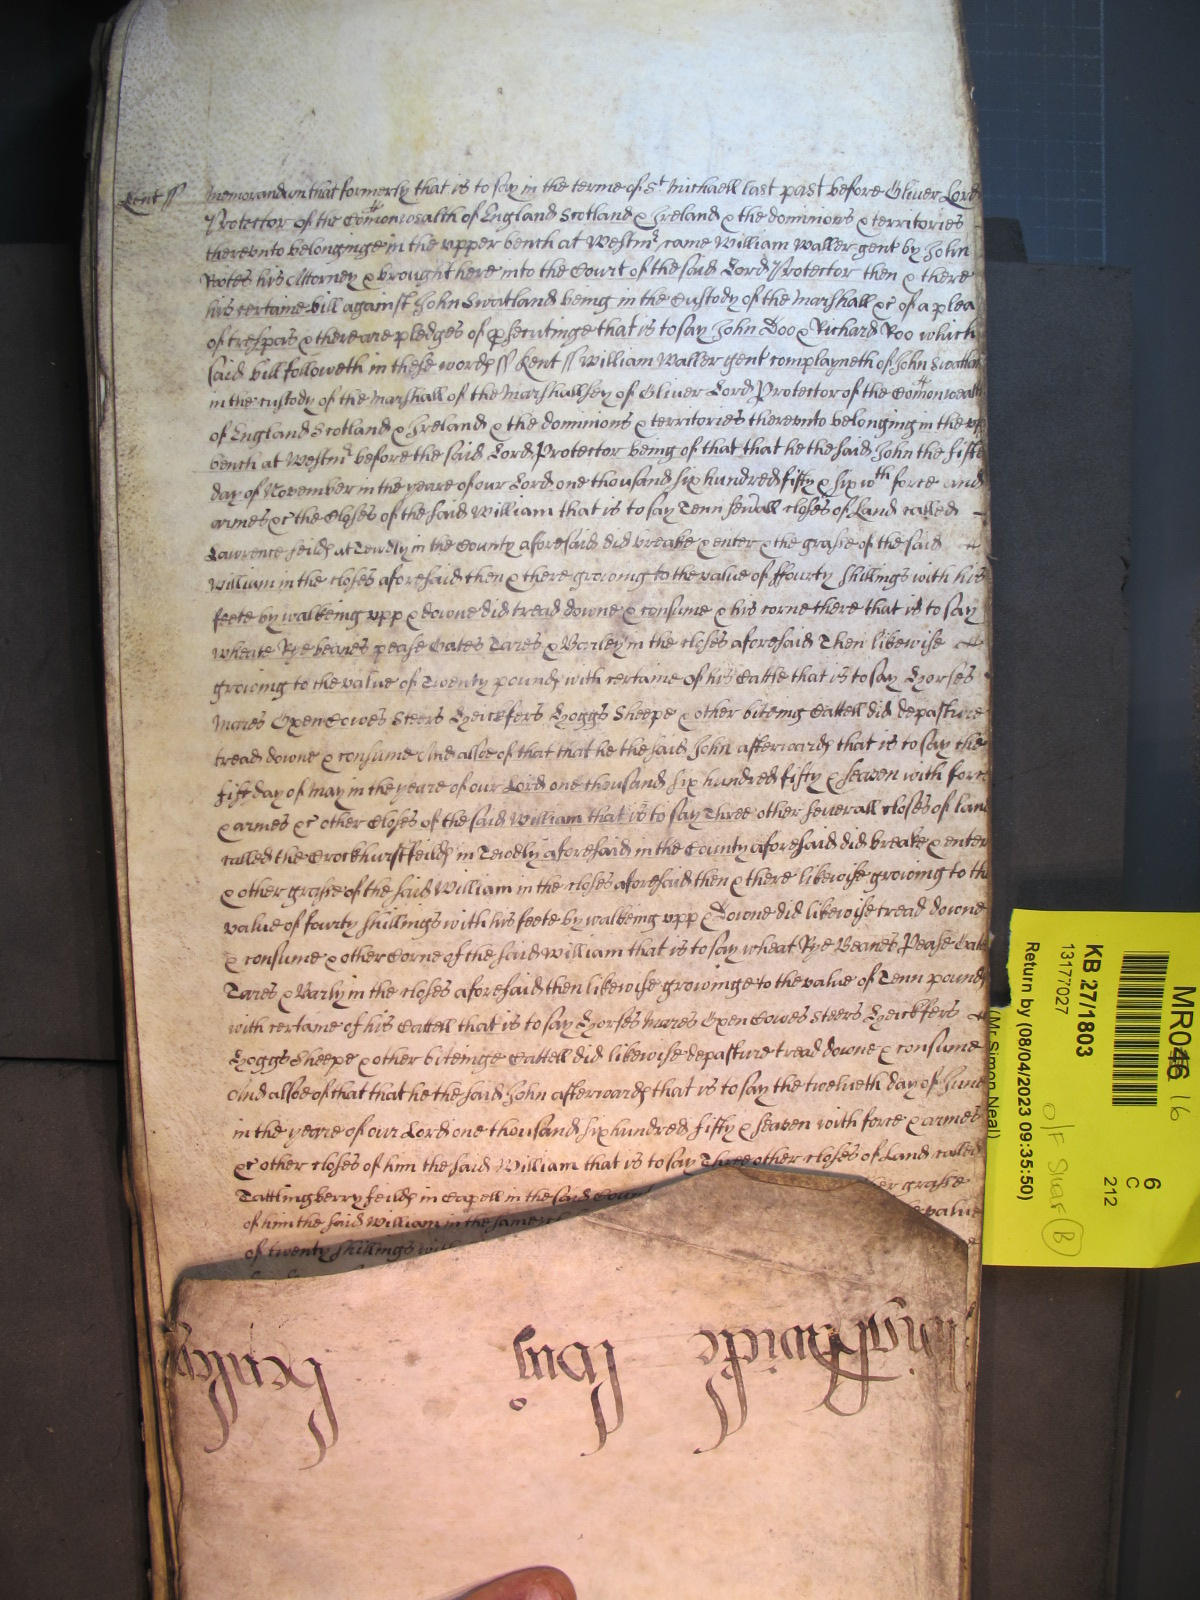 Kent ss Memorandum that formerly that is to say in the terme of St Michaell last past before Oliver Lord
Protector of the Comonwealth of England Scotland & Ireland & the dominions & territories
therevnto belonginge in the vpper bench at Westmr came William Waller gent by John
his Attorney & brought here into the Court of the said Lord Protector then & there
his certaine bill against John Swatland being in the Custody of the Marshall &c of a plea
of trespas & there are pledges of psecutinge that is to say John Doo & Richard Roo which
said bill followeth in these words ss Kent ss William Waller gent complayneth of John Swatland
in the custody of the Marshall of the Marshallsey of Oliver Lord Protector of the Comonwealth
of England Scotland & Ireland & the dominions & territories therevnto belonging in the vpp
bench at Westmr before the said Lord Protector being of that that he the said John the fifte
day of November in the yeare of our Lord one thousand six hundred fifty & six wth force and
armes &c the Closes of the said William that is to say Tenn sevall closes of Land called
Lawrence feilds at Tewdly in the County aforesaid did breake & enter & the grasse of the said
William in the closes aforesaid then & there growing to the value of ffourty shillings with his
feete by walkeing vpp & downe did tread downe & consume & his corne there that is to say
wheate Rye beanes pease Oates Tares & Barley in the closes aforesaid Then likewise
growing to the value of Twenty pounds with certaine of his Cattle that is to say Horses
Mares Oxen Cowes Steers Heickfers Hoggs Sheepe & other biteing Cattell did depasture
tread downe & consume And alsoe of that that he the said John afterwards that is to say the
fift day of May in the yeare of our Lord one thousand six hundred fifty & seaven with force
& armes &c other Closes of the said William that is to say Three other severall closes of land
called the Crockhurst feilds in Tewdly aforesaid in the County aforesaid did breake & enter
& other grasse of the said William in the closes aforesaid then & there likewise growing to the
value of fourty shillings with his feete by walkeing vpp & Downe did likewise tread downe
& consume & other Corne of the said William that is to say wheat Rye Beanes Pease Oats
Tares & Barly in the closes aforesaid then likewise growinge to the value of Tenn pounds
with certaine of his Cattell that is to say Horses Mares Oxen Cowes Steers Heickfers
Hoggs Sheepe & other biteinge Cattell did likewise depasture tread downe & consume
And alsoe of that that he the said John afterwards that is to say the twelveth day of June
in the yeare of our Lord one thousand six hundred fifty & seaven with force & armes
&c other closes of him the said William that is to say Three other closes of Land called
Tattlingberry feilds in Capell in the said Coun her grasse
of him the said William in the same value
of twenty shillings with
MR046 16
KB 27/1803
13177027
6
C
212
Return by (08/04/2023 09:35:50)
(Mr Simon Neal)